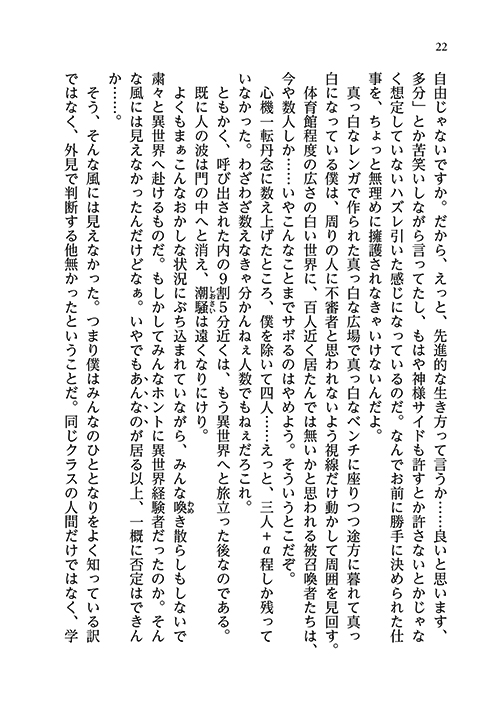 22
自由じゃないですか。だから、えっと、先進的な生き方って言うか……良いと思います、
多分」とか苦笑いしながら言ってたし、もはや神様サイドも許すとか許さないとかじゃな
く想定していないハズレ引いた感じになっているのだ。なんでお前に勝手に決められた仕
事を、ちょっと無理めに擁護されなきゃいけないんだよ。
真っ白なレンガで作られた真っ白な広場で真っ白なベンチに座りつつ途方に暮れて真っ
白になっている僕は、周りの人に不審者と思われないよう視線だけ動かして周囲を見回す。
体育館程度の広さの白い世界に、百人近く居たんでは無いかと思われる被召喚者たちは、
今や数人しか……いやこんなことまでサボるのはやめよう。そういうとこだぞ。
心機一転丹念に数え上げたところ、僕を除いて四人……えっと、三人+α程しか残って
いなかった。わざわざ数えなきゃ分かんねぇ人数でもねぇだろこれ。
ともかく、呼び出された内の９割５分近くは、もう異世界へと旅立った後なのである。
既に人の波は門の中へと消え、潮騒しおさいは遠くなりにけり。
よくもまぁこんなおかしな状況にぶち込まれていながら、みんな喚わめき散らしもしないで
粛々と異世界へ赴けるものだ。もしかしてみんなホントに異世界経験者だったのか。そん
な風には見えなかったんだけどなぁ。いやでもあんなのが居る以上、一概に否定はできん
か……。
そう、そんな風には見えなかった。つまり僕はみんなのひととなりをよく知っている訳
ではなく、外見で判断する他無かったということだ。同じクラスの人間だけではなく、学